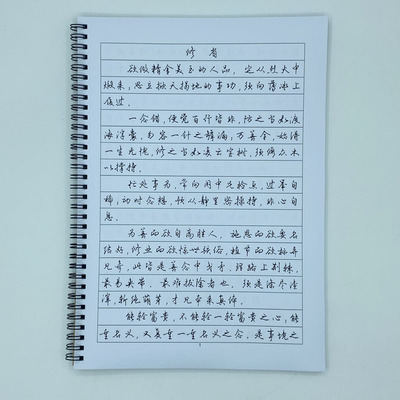 修省
欲做精金美玉的人品，定从烈火中
煅来，思立掀天揭地的事功，须向薄冰上
履过。
一念错，便觉百行皆非，防之当如渡
海浮囊，勿容一针之罅漏，万善全，始得
一生无愧，修之当如凌云宝树，须假众木
以撑持。
忙处事为，常向闲中先检点，过举自
稀，动时念想，预从静里密操持，非心自
息。
为善而欲自高胜人，施恩而欲要名
结好，修业而欲惊世骇俗，植节而欲标异
见奇，此皆是善念中戈矛，理路上荆棘，
最易夹带，最难拔除者也，须是涤尽渣
滓，斩绝萌芽，才见本来真体。
能轻富贵，不能轻一轻富贵之心，能
重名义，又复重一重名义之念，是事境之
1